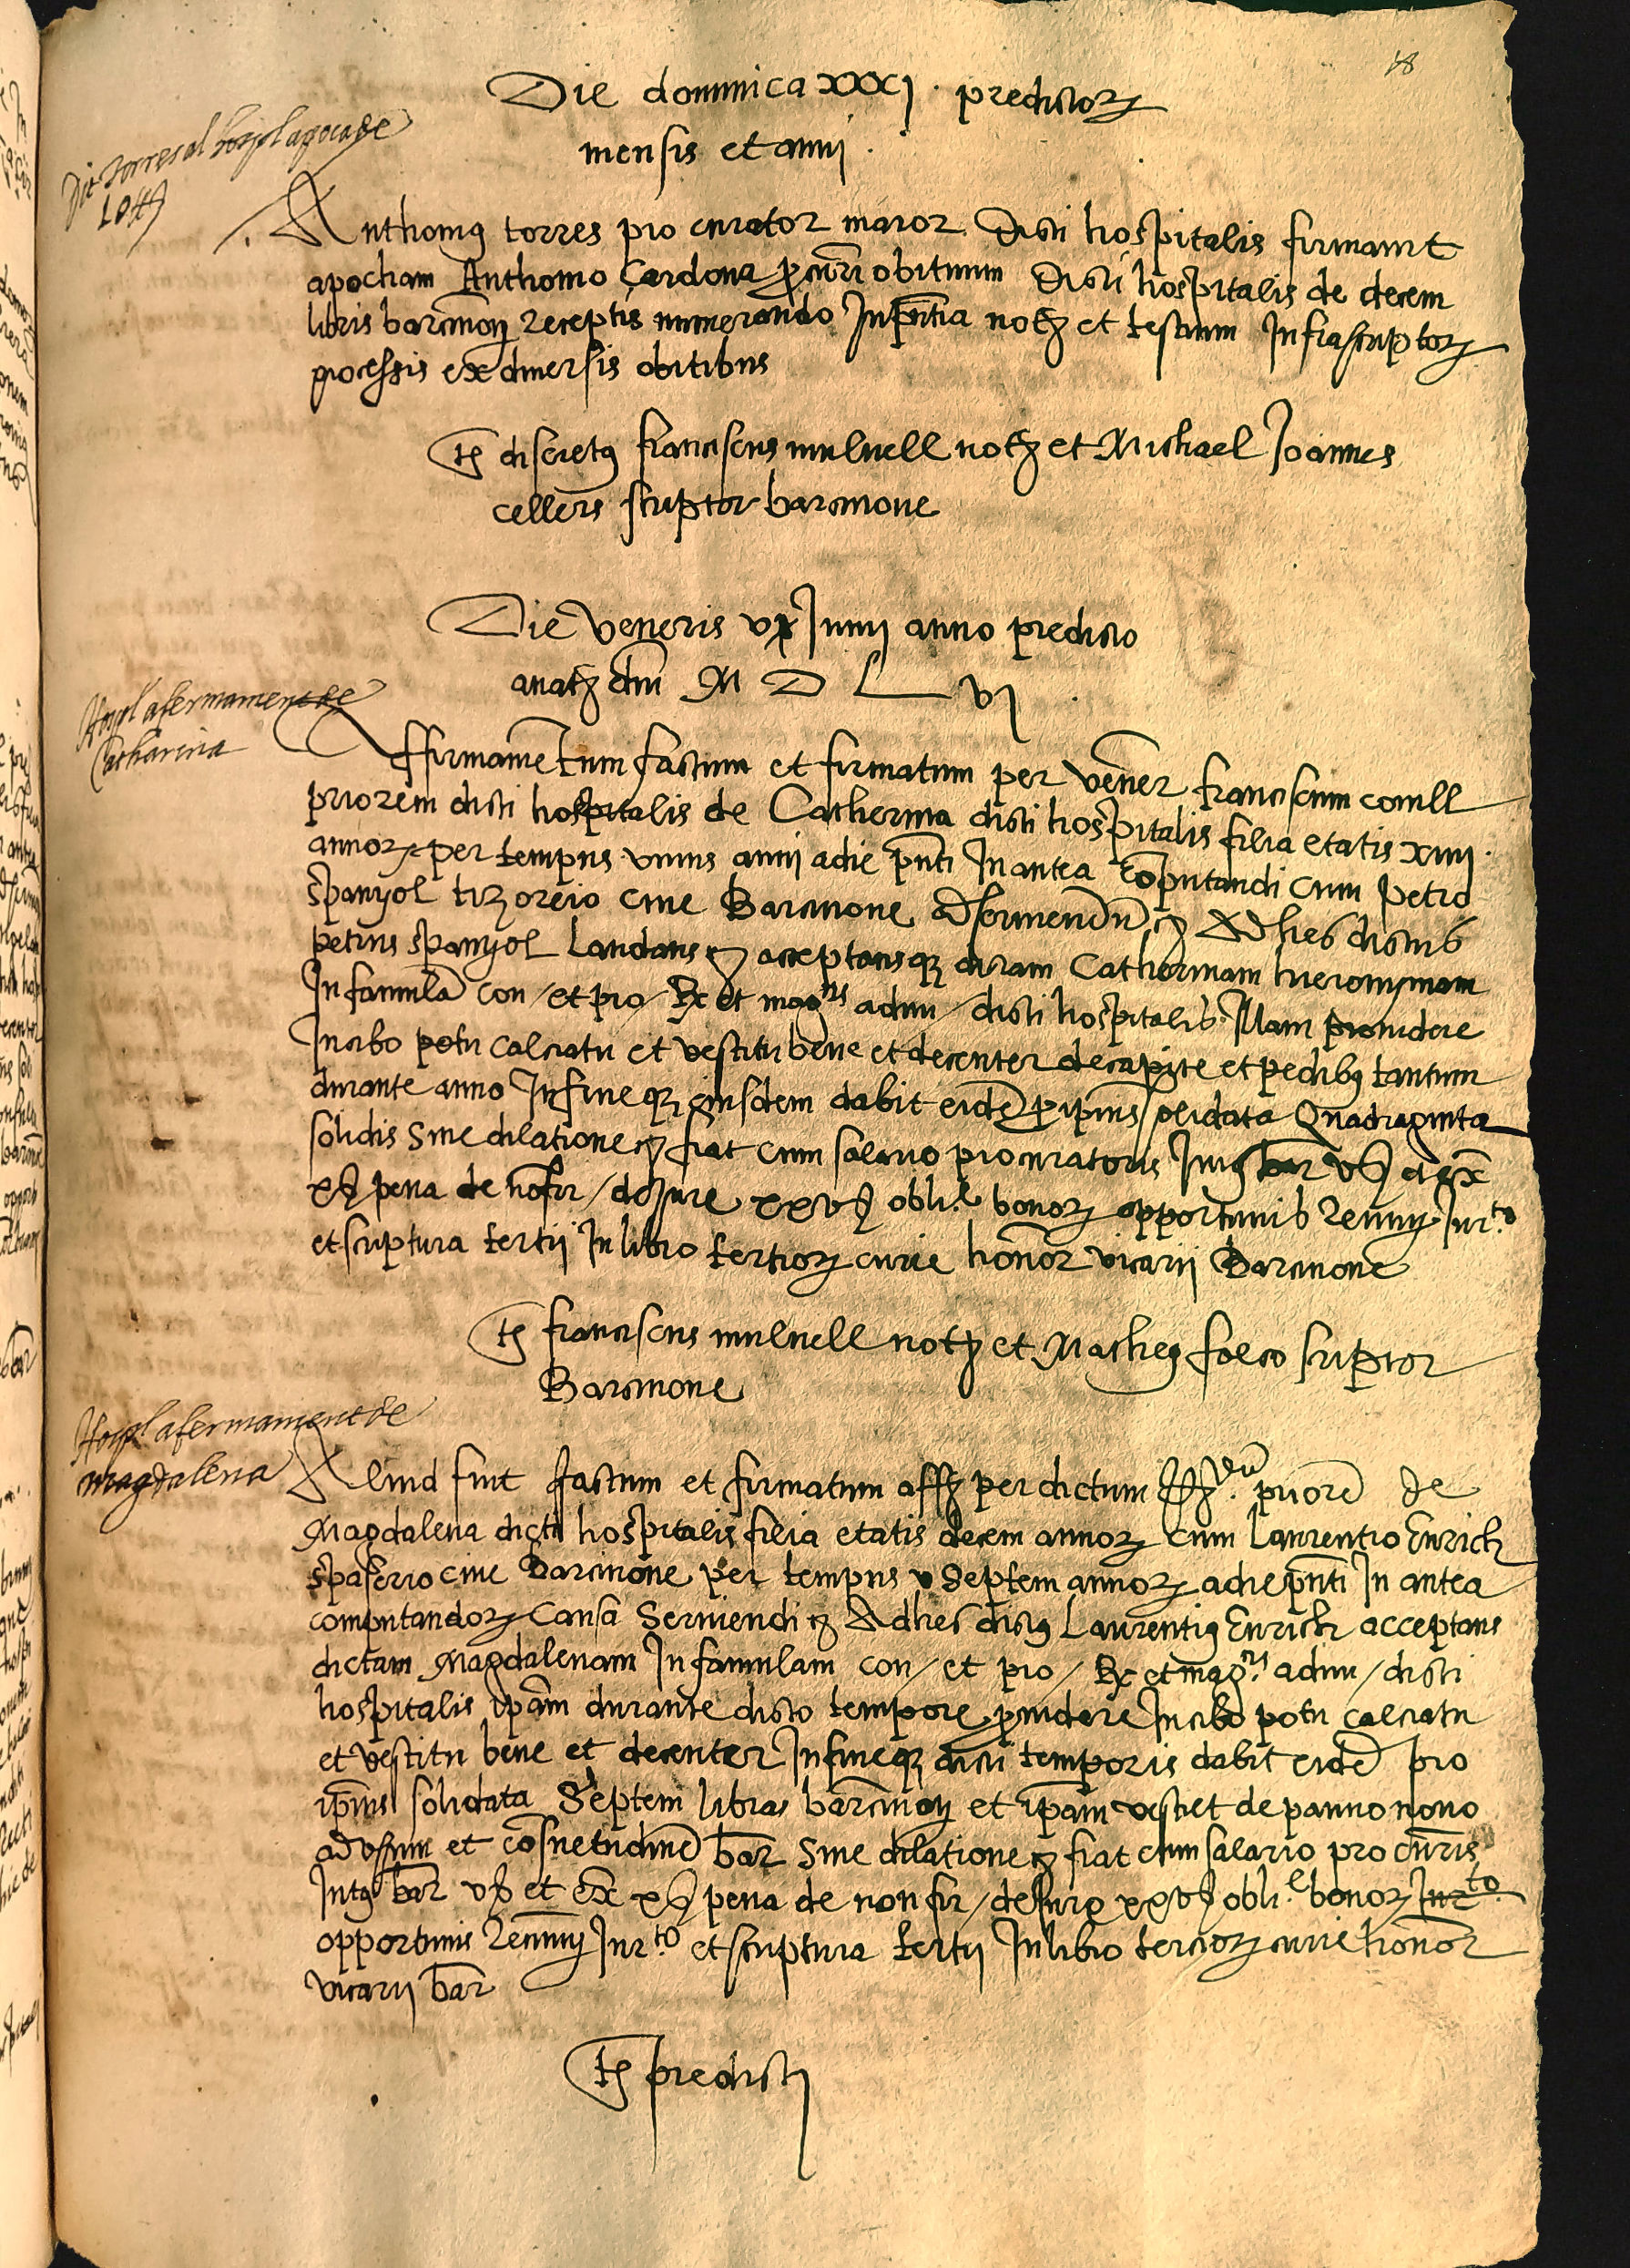 18
Die dominica xxxj predictorꝝ
mensis et annj
Dit torres al hospl apoca de
10 ℔
Anthoniꝰ torres procurator maior dicti hospitalis firmavit
apocham Anthonio Cardona ꝓcūri obituum dicti hospitalis de decem
libris barcīnon receptis numerando In pn̄tia notꝝ et testium Infrascriptorꝝ
processis ex diversis obitibus
ts discretꝰ franciscus mulnell notꝝ et Michael Joannes
cellers scriptor barcinone
Die veneris v Junij anno predicto
a natꝝ dnī M D L vj
Hospl afermament de
Catharina
Affirmamentum factum et firmatum per vener franciscum conill
priorem dicti hospitalis de Catherina dicti hospitalis filia etatis xiiij
annorꝝ per tempus unius annj a die pn̄ti In antea cōputandi cum petro
spanyol cive Barcinone ad serviendū ꝛc Ad hec dictus
petrus spanyol laudans ꝛc acceptansqꝫ dictam Catherinam hieronymam
In famulā con / et pro / Rx et magcis adm / dicti hospitalis Illam providere
In cibo potu calciatu et vestitu bene et decenter de capite et pedibꝰ tantum
durante anno In fineqꝫ eiusdem dabit eidē ꝓ ipīus solidata Quadraginta
solidis Sine dilatione ꝛc fiat cum salario procuratoris Intꝰ bar vß et ex̄
xß pena de no fir / de Jure xxvß obli.e bonorꝝ opportunis Jur.to
et scriptura tertij In libro tertiorꝝ curie honōr vicarij Barcinone
ts franciscus mulnell notꝝ et Matheꝰ solco scriptor
Barcinone
Hospl afermament de
magdalena
Aliud fuit factum et firmatum affꝝ per dictum priorē de
Magdalena dicti hospitalis filia etatis decem annorꝝ cum laurentio Enrich
spaserio cive Barcinone per tempus Septem annorꝝ a die pn̄ti In antea
computandorꝝ Causa Serviendi ꝛc Ad hec dictꝰ Laurentiꝰ Enrich acceptans
dictam Magdalenam In famulam con / et pro / Rx et magcis adm / dicti
hospitalis ipām durante dicto tempore ꝓvidere In cibo potu calciatu
et vestitu bene et decenter In fineqꝫ dicti temporis dabit eidē pro
ipīus solidata Septem libras barcīnon et ipām vestiet de panno novo
ad usum et cōsuetudinē bar̄ Sine dilatione ꝛc fiat cum salario procūris
Intꝰ bar̄ vß et ex̄ xß pena de non fir / de Jure xxvß obli.e bonorꝝ Jur.to
opportunis Jur.to et scriptura tertij In libro terciorꝝ curie honōr
vicarij bar̄
ts predicti